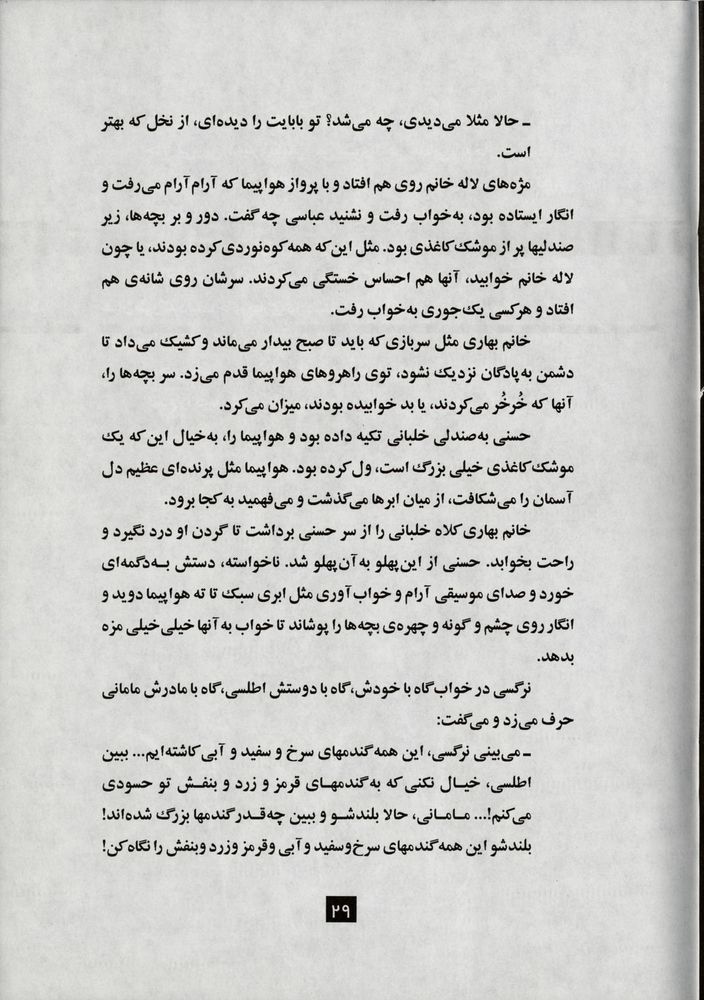 ـ حالا مثلا می‌دیدی، چه می‌شد؟ تو بابایت را دیده‌ای، از نخل که بهتر
است.
مژه‌های لاله خانم روی هم افتاد و با پرواز هواپیما که آرام آرام می‌رفت و
انگار ایستاده بود، به‌خواب رفت و نشنید عباسی چه گفت. دور و بر بچه‌ها، زیر
صندلیها پر از موشک کاغذی بود. مثل این‌که همه کوه‌نوردی کرده بودند، یا چون
لاله خانم خوابید، آنها هم احساس خستگی می‌کردند. سرشان روی شانه‌ی هم
افتاد و هرکسی یک‌جوری به‌خواب رفت.
خانم بهاری مثل سربازی که باید تا صبح بیدار می‌ماند و کشیک می‌داد تا
دشمن به پادگان نزدیک نشود، توی راهروهای هواپیما قدم می‌زد. سر بچه‌ها را،
آنها که خُرخُر می‌کردند، یا بد خوابیده بودند، میزان می‌کرد.
حسنی به‌صندلی خلبانی تکیه داده بود و هواپیما را، به‌خیال این‌که یک
موشک کاغذی خیلی بزرگ است، ول کرده بود. هواپیما مثل پرنده‌ای عظیم دل
آسمان را می‌شکافت، از میان ابرها می‌گذشت و می‌فهمید به کجا برود.
خانم بهاری کلاه خلبانی را از سر حسنی برداشت تا گردن او درد نگیرد و
راحت بخوابد. حسنی از این پهلو به آن پهلو شد. ناخواسته، دستش بـه‌دگمه‌ای
خورد و صدای موسیقی آرام و خواب‌آوری مثل ابری سبک تا ته هواپیما دوید و
انگار روی چشم و گونه و چهره‌ی بچه‌ها را پوشاند تا خواب به آنها خیلی‌خیلی مزه
بدهد.
نرگسی در خواب گاه با خودش، گاه با دوستش اطلسی، گاه با مادرش مامانی
حرف می‌زد و می‌گفت:
ـ می‌بینی نرگسی، این همه گندمهای سرخ و سفید و آبی کاشته‌ایم... ببین
اطلسی، خیـال نکنی که به گندمهـای قرمز و زرد و بنفـش تو حسودی
می‌کنم!... مـامـانی، حالا بلندشـو و ببین چه‌قـدر گندمها بزرگ شده‌اند!
بلندشو این همه گندمهای سرخ و سفید و آبی و قرمز و زرد و بنفش را نگاه کن!
۲۹